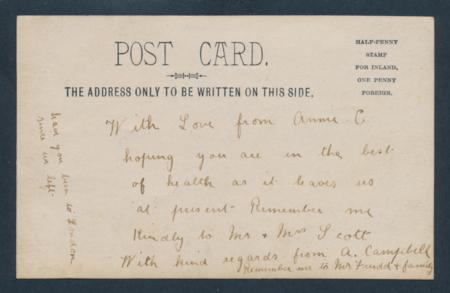 POST CARD.
HALF-PENNY
STAMP
FOR INLAND,
ONE PENNY
FOREIGN.
THE ADDRESS ONLY TO BE WRITTEN ON THIS SIDE.
With Love from Annie C
hoping you are in the best
of health as it leaves us
at present Remember me
Kindly to Mr & Mrs Scott
With kind regards from A. Campbell
Remember me to Mr & family
have you been to London
since we left